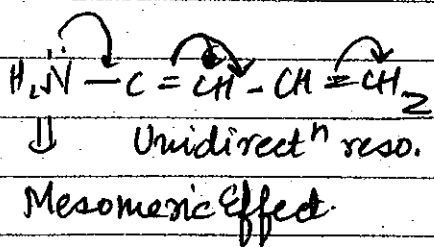 H₂N̈ — C = CH - CH = CH₂
⇓ Unidirectⁿ reso.
Mesomeric Effect.